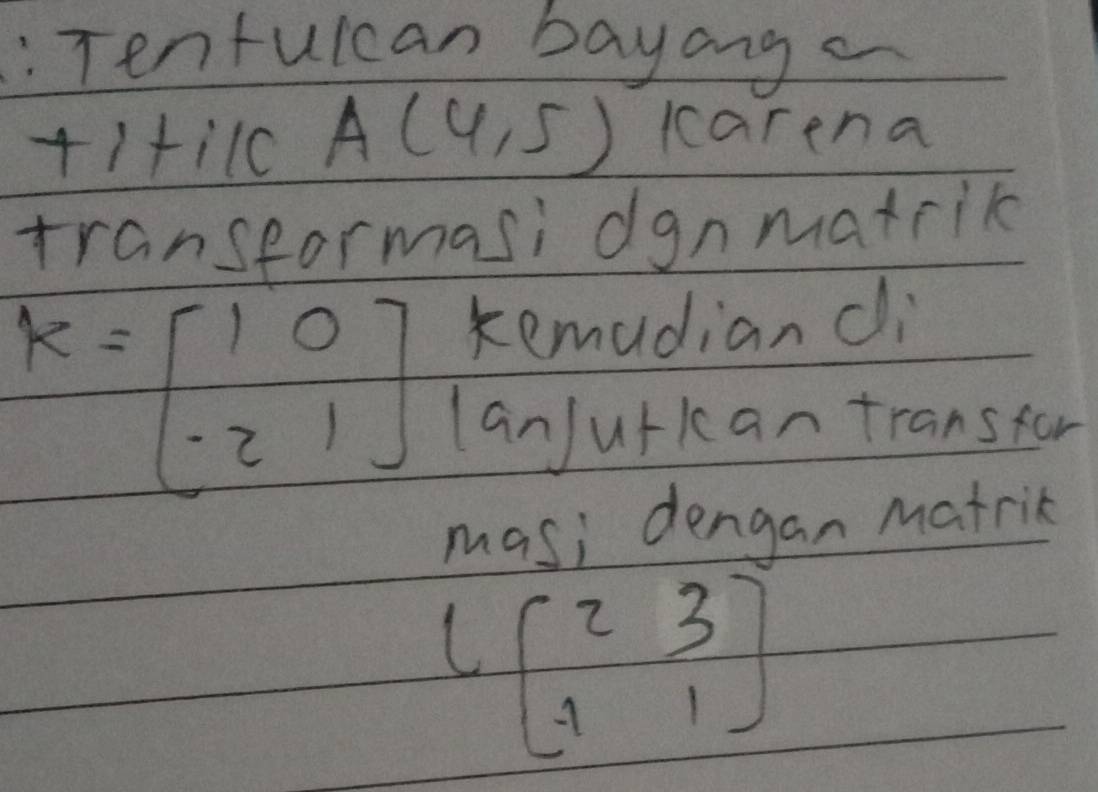 : Tentukan bayangan
titik A (4,5) karena
transformasi dgn matrik
K = [ 1 0 ] kemudian di
[ -2 1 ] lanjutkan transfor
masi dengan matrik
L [ 2 3 ]
[ -1 1 ]